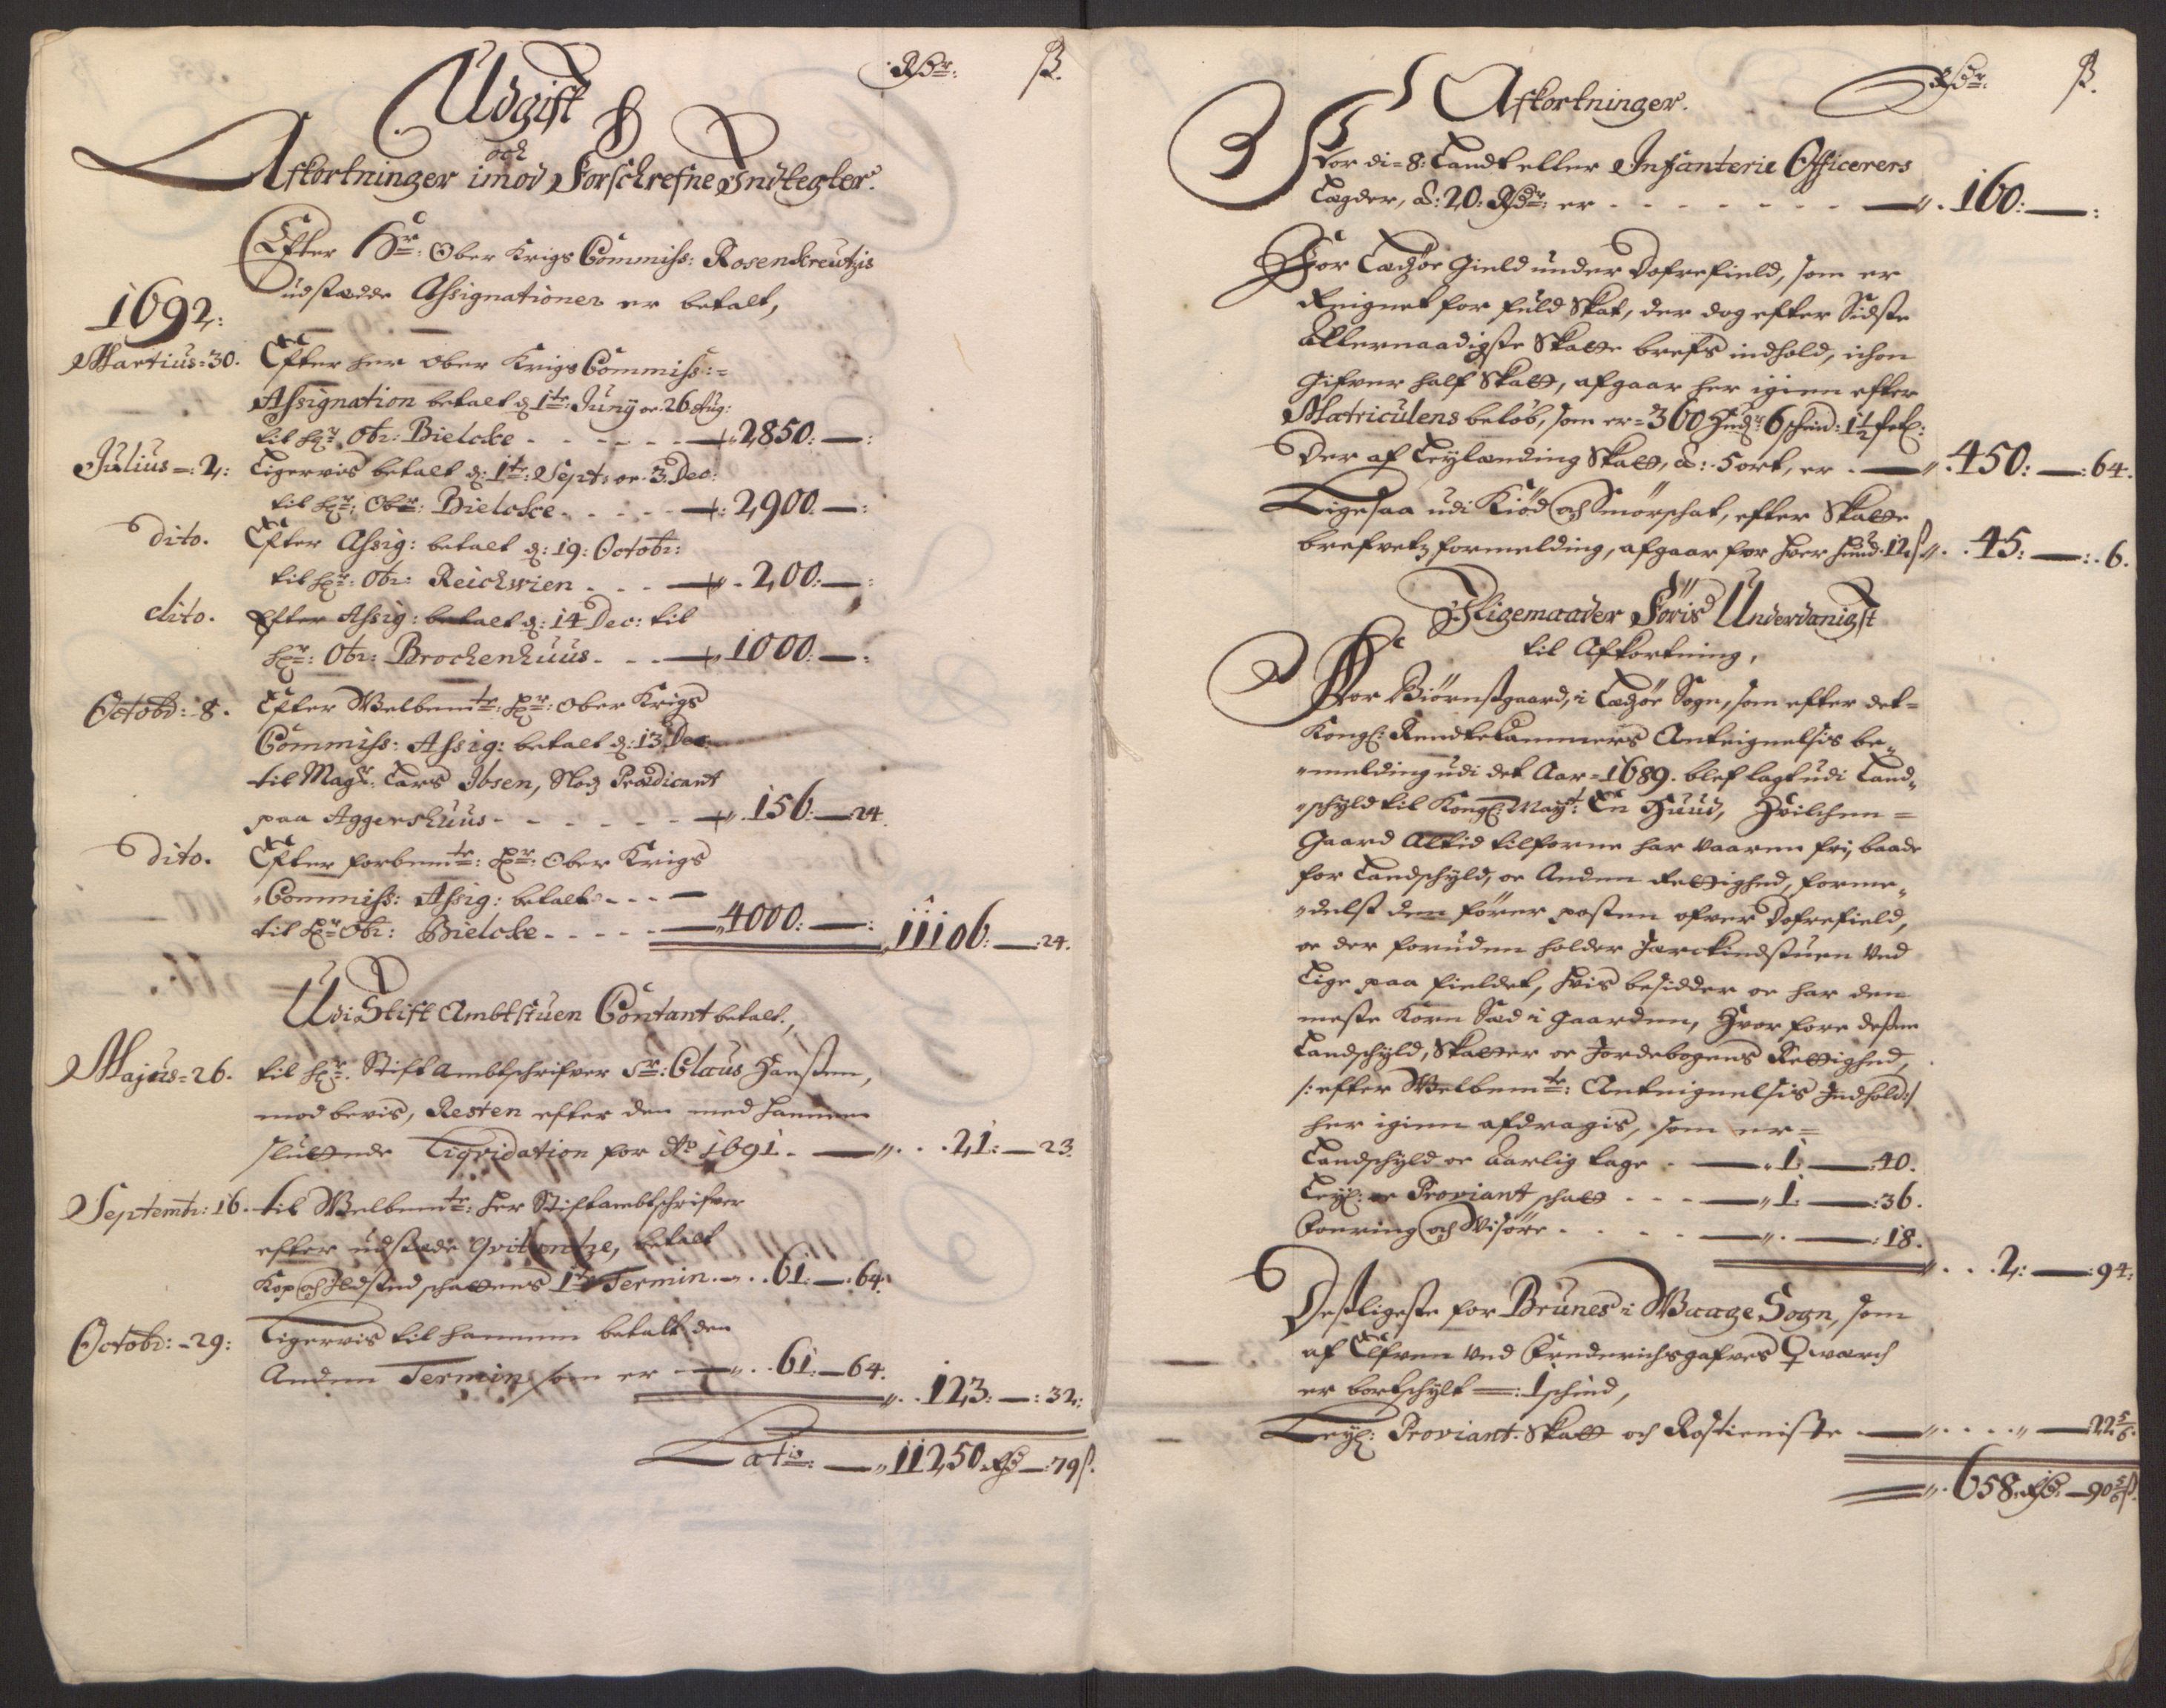 Rdr: ß.
Udgift
och
Afkortninger imod Forschrefne Indtegter.
Efter Hr: Ober Krigs Commiss: Rosenkreutzis
udstædde Assignationer er betalt,
1692:
Martius=30. Efter her Ober Krigs Commiss:=
Assignation betalt d: 1te Juny oc 26 Aug:
til Hr: Obr: Bielcke - - - 2850:—:
Julius=: 2: Ligervis betalt d: 1te: Sept: oc 3 Dec:
til Hr: Obr: Bielcke - - - 2900.—:
dito. Efter Assig: betalt d: 19: Octobr:
til Hr: Obr: Reichwien - - - 200:—:
dito. Efter Assig: betalt d: 14 Dec: til
Hr: Obr: Brochenhuus - - - 1000:—:
Octobr:-8. Efter Welbemte: Hr: Ober Krigs
Commiss: Assig: betalt d: 13 Dec:
til Magr. Lars Ibsen, Slodz Prædicant
paa Aggershuus - - - 156.—24.
dito. Efter forbemte: Hr: Ober Krigs
Commiss: Assig: betalt - - -
til Hr Obr: Bielcke - - - 4000:—: 11106:—:24.
Udi Stift Ambtstuen Contant betalt,
Majus=26. til Hr. Stift Ambtschrifver Sr: Claus Hanssen,
mod bevis, Resten efter den med hannem
sluttende Liqvidation for Ao 1691. — 21:—23.
Septembr: 16. til Welbemte: Her Stiftambtschrifver
efter udstæde Qvitantze, betalt
Kop och Ildsted schattens 1te Termin. - 61.—:64.
Octobr:-29: Ligervis til hannem betalt den
Anden Termin som er — 61.—64.
123:—:32:
Latis: — 11250 Rd—:79ß.
Afkortninger. Rdr: ß.
For di=8: Landt eller Infanterie Officerers
Lægder, à: 20: Rdr: er - - - 160:—:
For Ledzøe Gield under Dofrefield, som er
Reignet for fuld Skat, der dog efter Sidste
Allernaadigste Skatte brefs indhold, ichon
Gifver half Skatt, afgaar her igien efter
Matriculens beløb, som er=360 Hudr 6 schind: 1½ fel:
Der af Leylænding Skatt, à: 5 ort, er — 450:—:64.
Ligesaa udi Kiød och Smørschat, efter Skatte
brefvetz formelding, afgaar for hver hud: 12ß — 45:—:6.
Iligemaader Føris Underdanigst
til Afkortning,
For Biørnsgaard, i Ledzøe Sogn, som efter det=
Kongl: Rendtekammers Anteignelsis be=
melding udi det Aar=1689. blef lagt udi Land=
schyld til Kongl: Mayt: En Huud, Hvilchen=
Gaard Altid tilforne har vaaren fri, baade
for Landschyld, oc Anden Rettighed, forme=
delst den fører posten ofver Dofrefield,
oc der foruden holder Jarckindstuen ved
Lige paa fieldet, hvis besidder oc har den
meste Korn Sæd i Gaarden, Hvor fore dessen
Landschyld, Skatter oc Jordebogens Rettighed,
/:efter Welbemte: Anteignelsis Indhold:/
her igien afdragis, som er=
Landschyld oc Aarlig tage - — 1:—:40.
Leyl: oc Proviant schatt - - - — 1:—:36.
Foering och Wisøre - - - —:18.
2:—:94:
Desligeste for Brunes i Waage Sogn, som
af Elfven ved Frederichsgafves qværch
er bortschylt=: 1 schind,
Leyl: Proviant. Skatt och Rostieniste — 22 5/6.
658. Rd:—90 5/6 ß.